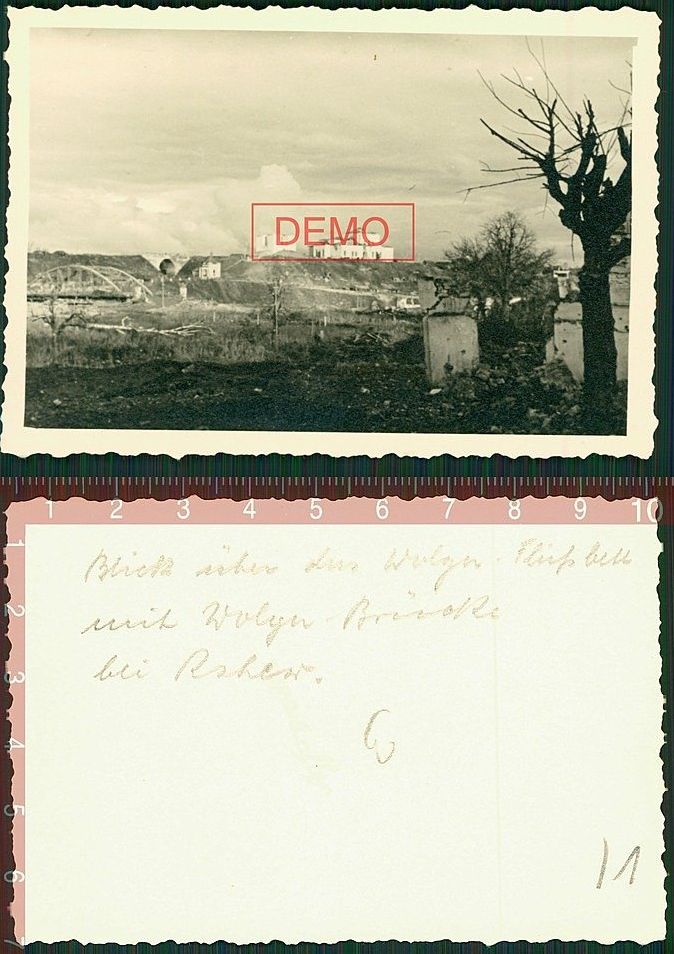 DEMO
1 2 3 4 5 6 7 8 9 10
1
2
3
4
5
6
7
Blick über das Wolga-Flußbett
mit Wolga-Brücke
bei Rshew.
11